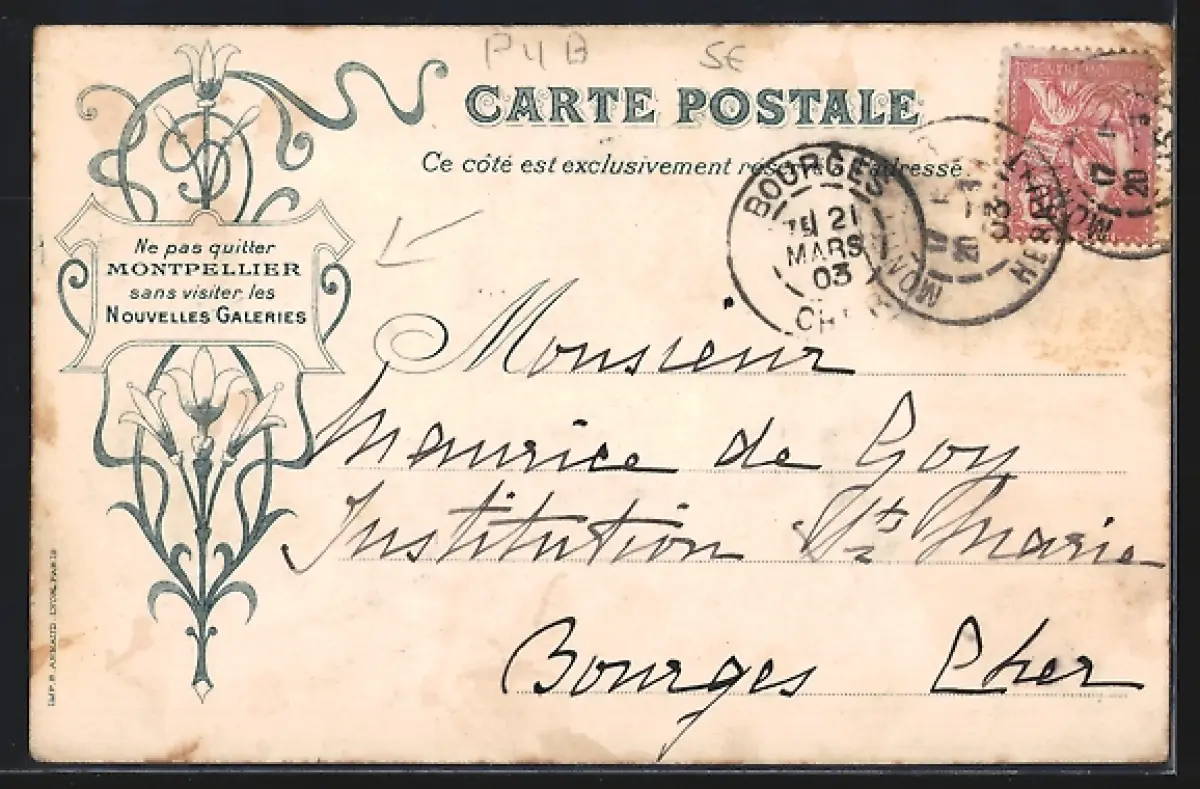 P U B
SE
CARTE POSTALE
Ce côté est exclusivement réservé à l'adresse
Ne pas quitter
MONTPELLIER
sans visiter les
NOUVELLES GALERIES
BOURGES
21
MARS
03
17
20 - 3
03
HERAULT
17
20 3
Monsieur
Maurice de Goy
Institution Ste Marie
Bourges Cher
IMP. B. ARNAUD. LYON. PARIS